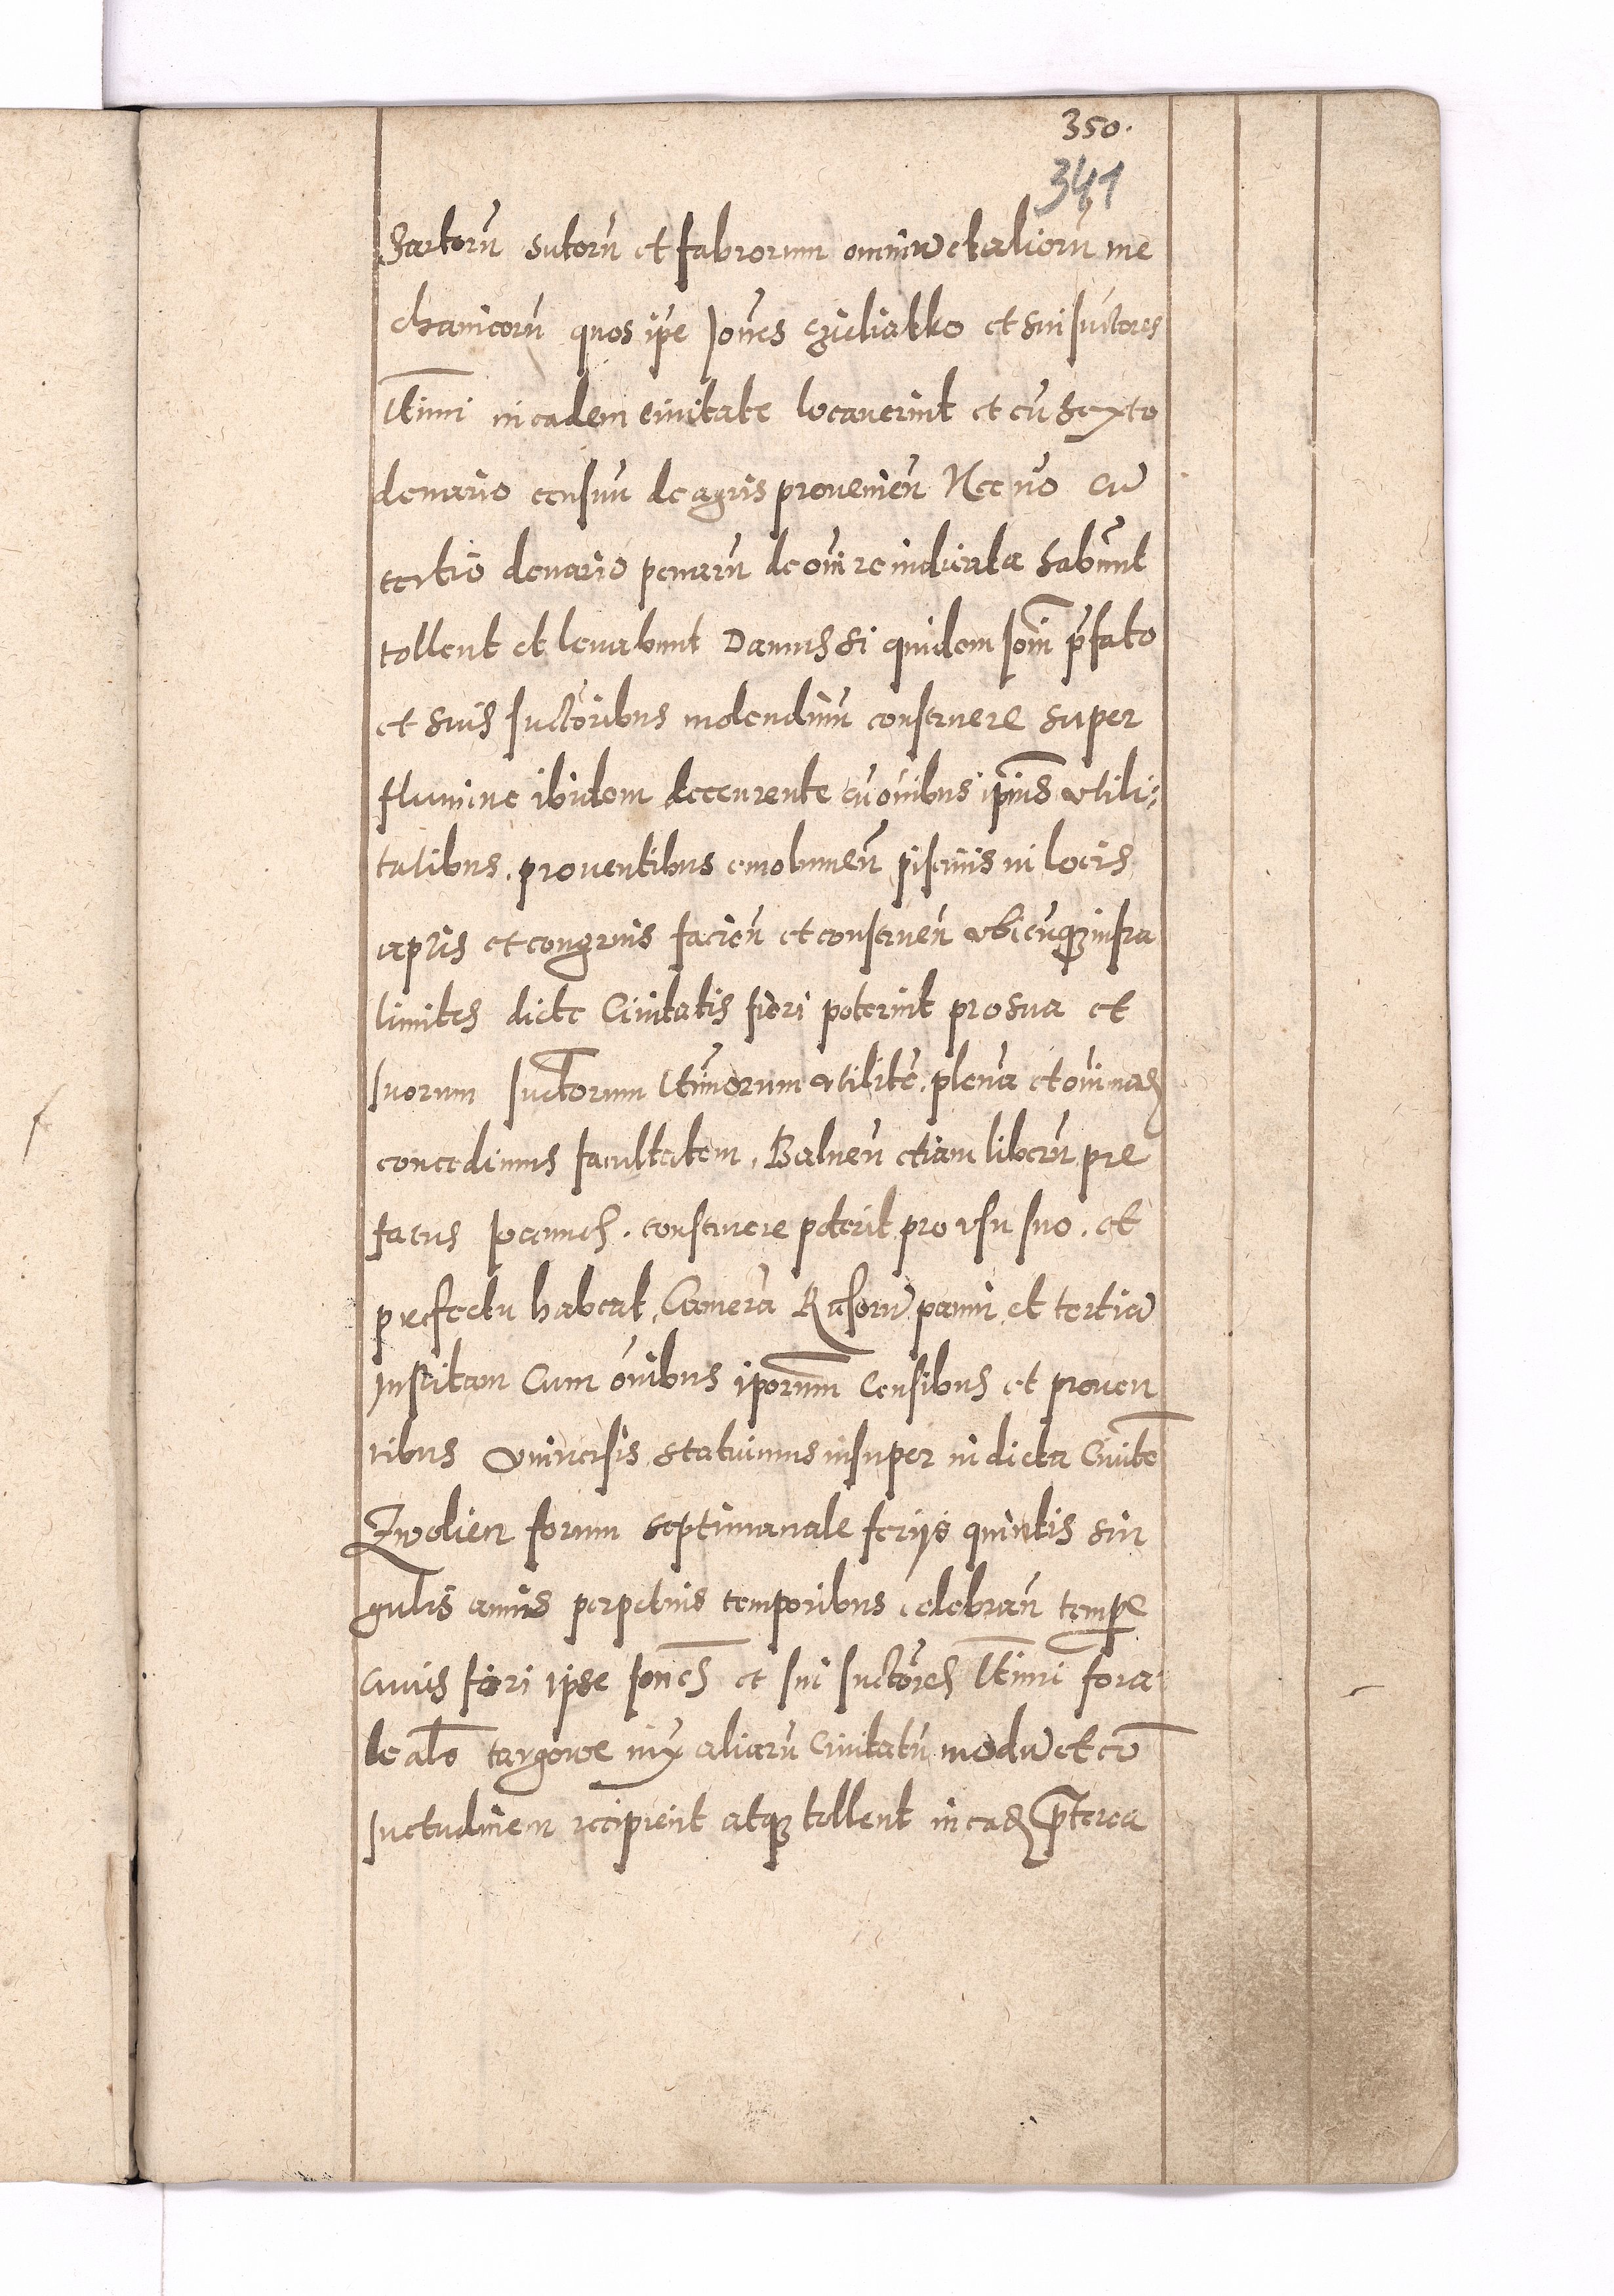 350.
341
Sartorū sutorū et fabrorum omniū et aliorū me
chanicorū quos ip̄e Joānes et sui suctores
ltimi in eadem ciuitate locauerint et cū sexto
denario censuū de agris prouenien̄ Nec nō cū
tertio denario penarū de om̄i re iudicata habūnt
tollent et leuabunt Damus si quidem Joān̄i p̄fato
et suis suctoribus molendinū construere super
flumine ibidem decurente cū om̄ibus ip̄ius vtili⸗
tatibus. prouentibus emolumen̄ piscinis in locis
aptis et congruis facien̄ et construen̄ vbicūq3 infra
limites dicte Ciuitatis fieri poterint pro sua et
suorum suctorum ltimorum vtilitē. plenā et om̄imad̄
concedimus facultatem. Balneū etiam liberū pre
fatus Joannes. construere poterit pro vsu suo. et
prefectu habeat, Camerā Rasorū panni et tertiā
institam Cum om̄ibus ip̄orum Censibus et prouen
tibus vniuersis statuimus insuper in dicta Ciuitē
Zwolien forum septimanale ferijs quintis sin
gulis annis perpetuis temporibus celebran̄ tempe
cuius fori ipse Joānes et sui suctores ltimi fora⸗
le al̄s targowe iux aliarū Ciuitatū modū et cō
suetudinem recipient atq3 tollent in ead̄ p̄terea